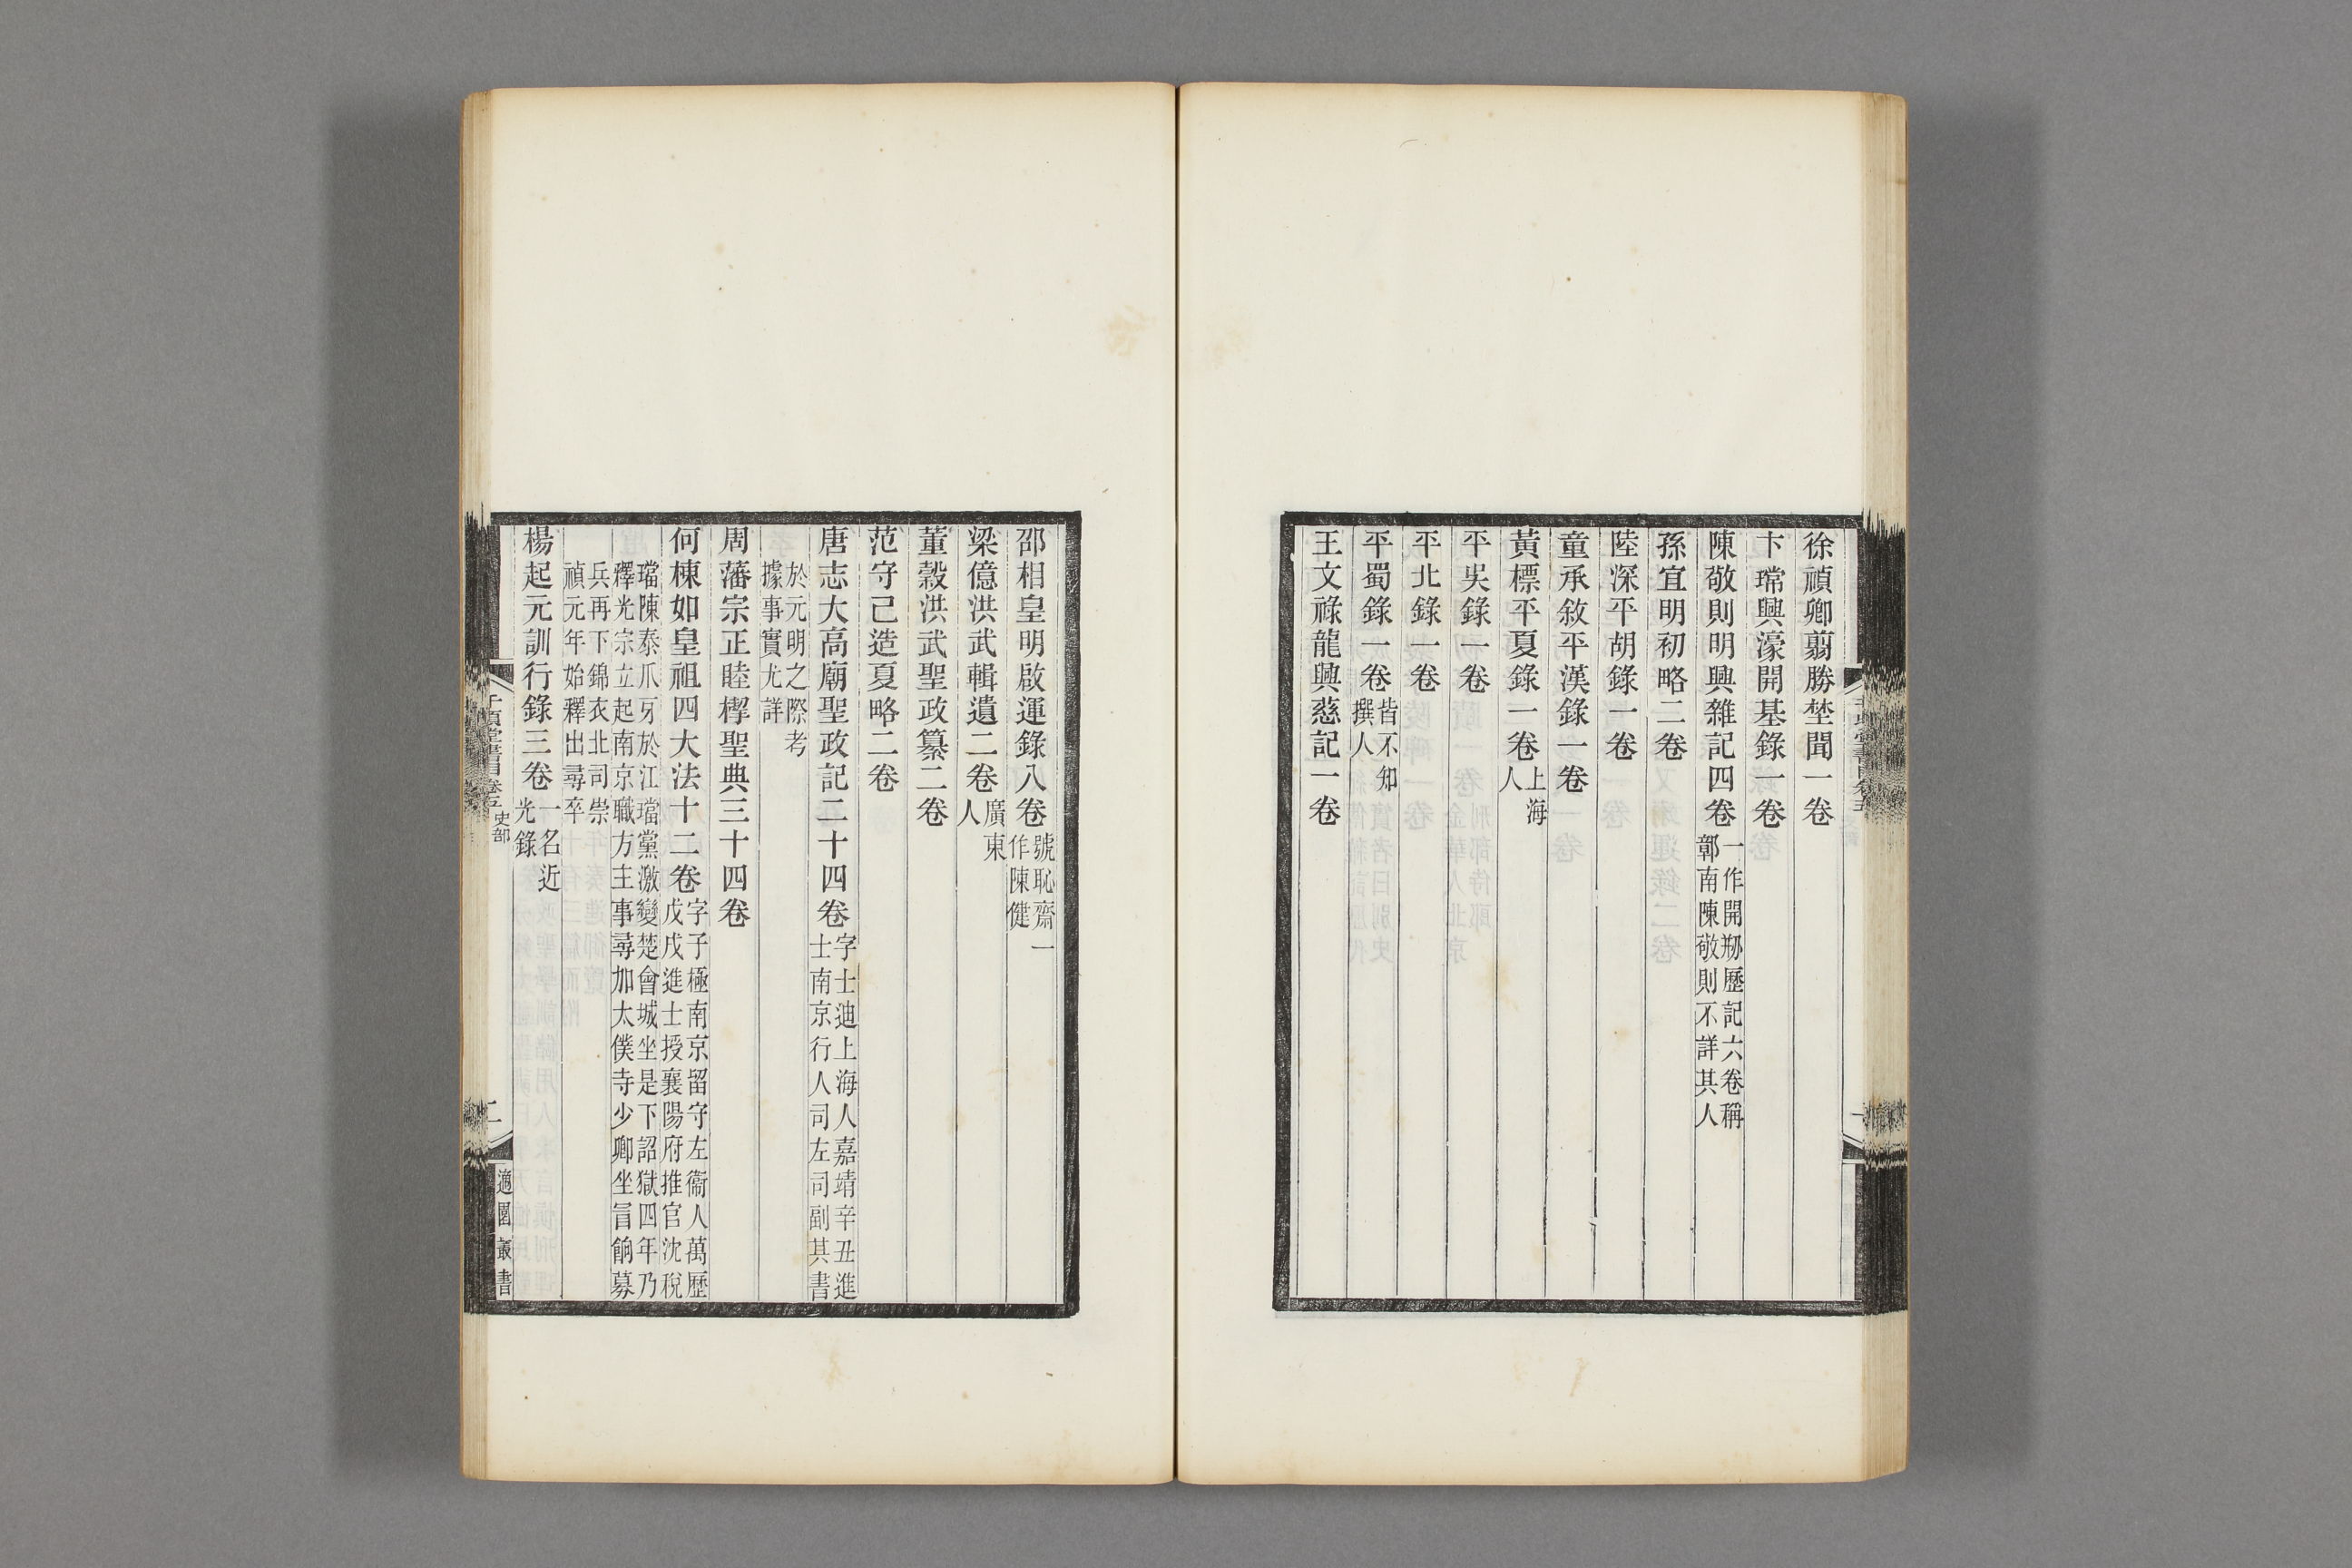 徐禎卿翦勝埜聞一卷
卞瑺興濠開基錄一卷
陳敬則明興雜記四卷一作開剙歷記六卷稱鄣南陳敬則不詳其人
孫宜明初略二卷
陸深平胡錄一卷
童承敘平漢錄一卷
黃標平夏錄一卷上海人
平吳錄一卷
平北錄一卷
平蜀錄一卷皆不知撰人
王文祿龍興慈記一卷
邵相皇明啟運錄八卷號恥齋一作陳健
梁億洪武輯遺二卷廣東人
董穀洪武聖政纂二卷
范守己造夏略二卷
唐志大高廟聖政記二十四卷字士迪上海人嘉靖辛丑進士南京行人司左司副其書
於元明之際考據事實尤詳
周藩宗正睦㮮聖典三十四卷
何棟如皇祖四大法十二卷字子極南京留守左衞人萬歷戊戌進士授襄陽府推官沈稅
璫陳泰爪牙於江璫黨激變楚會城坐是下詔獄四年乃釋光宗立起南京職方主事尋加太僕寺少卿坐冐餉募
兵再下錦衣北司崇禎元年始釋出尋卒
楊起元訓行錄三卷一名近光錄
千頃堂書目卷五 史部
二
適園叢書